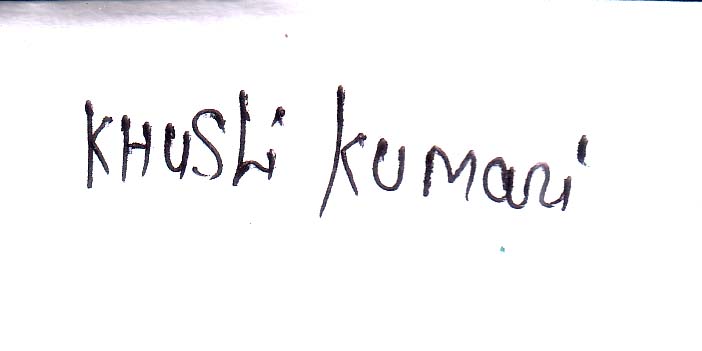 KHUShi kumari